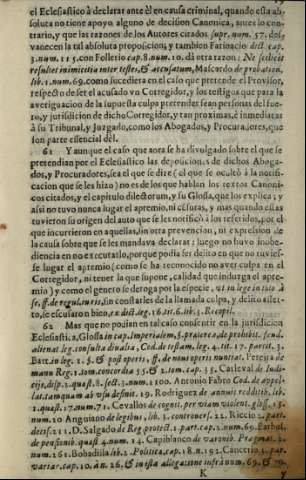 el Eclesiastico à declarar ante èl en causa criminal, quando esta absoluta no tiene apoyo alguno de decision Canonica, antes lo contrario, y que las razones de los Autores citados supr. num. 57. desvanecen la tal absoluta proposicion; y tambien Farinacio dict. cap.
3. num. 115. con Follerio cap. 8. num. 10. dà otra razon: Ne sedicet
resultet inimicitia inter testes, & accusatum, Mascardo de probation.
lib. 1. num. 69. como sucediera en el caso que pretende el Provisor,
respecto de ser el acusado vn Corregidor, y los testigos que para la
averiguacion de la supuesta culpa pretende, sean personas del fuero, y jurisdicion de dicho Corregidor, y tan proximas, è inmediatas
à su Tribunal, y Juzgado, como los Abogados, y Procuradores, que
son parte essencial del.
61 Y aun que el caso que aora se ha divulgado sobre el que se
pretendian por el Eclesiastico las deposiciones de dichos Abogados, y Procuradores, sea el que se dize (el qual se ocultò à la notificacion que se les hizo) no es de los que hablan los textos Canonicos citados, y el capitulo dilectorum, y su Glossa, que los explica; y
assi no tuvo nunca lugar el apremio, ni censuras, y mas quando estas
tuvieron su origen del auto que se les notificò à los referidos, por el
que incurrieron en aquellas, sin otra prevencion, ni expression de
la causa sobre que se les mandava declarar; luego no huvo inobediencia en no executarlo, porque podia ser delito en que no tuviesse lugar el apremio (como se ha reconocido no aver culpa en el
Corregidor, ni tener la que supone, calidad que induzga el apremio) y como el genero se deroga por la especie, vt in lege in toto
ff. de regul. iuris, sin constarles de la llamada culpa, y delito assertto, se escusaron bien, ex dict. leg. 16. tit. 6. lib. 3. Recopil.
62 Mas que no podian en tal caso consentir en la jurisdicion
Eclesiastica, Glossa in cap. Imperialem, §. praeterea, de prohibit. feud.
alienat. leg. consulta divalia, Cod. de testam. leg. 4. tit. 17. partit. 3.
Bart. in leg. 2. §. & post operis, ff. de noui operis nuntiat. Pereyra de
manu Reg. 1. tom. concordia 35. & 2. tom. cap. 35. Carleval de Iudicijs, disp. 2. quaest. 8. sect. 3. num. 1100. Antonio Fabro Cod. de appellat. tamquam ab vsu definit. 19. Rodriguez de annuis redditib. lib.
2. quaest. 17. num. 71. Cevallos de cognit. per viam violent. gloss. 15.
num. 20. Anguiano de legibus, lib. 3. controvers. 22. Riccio 2. part.
decis. 211. D. Salgado de Reg. protect. 1. part. cap. 2. num. 69. Barbol.
de pensionib. quaest. 4. num. 14. Capiblanco de baronib. Pragmat. 2.
num. 261. Bobadilla lib. 2. Politica, cap. 18. n. 192. Cancerio 3. part.
variar. cap. 10. à n. 26. & in ista allegatione infrà num. 69. & 70.
K